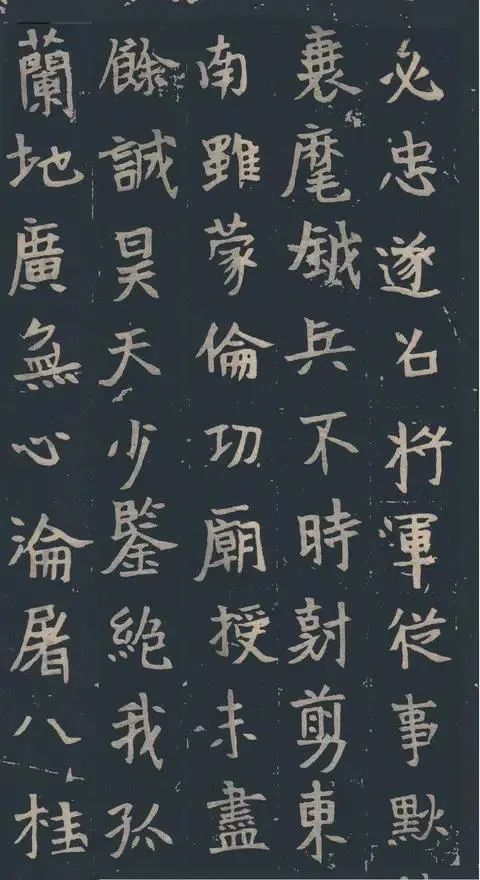 必忠遂召将軍從事默
襄麾鉞兵不時剋剪東
南雖蒙倫功廟授未盡
餘誠昊天少鑒絶我孤
蘭地廣無心淪屠八桂